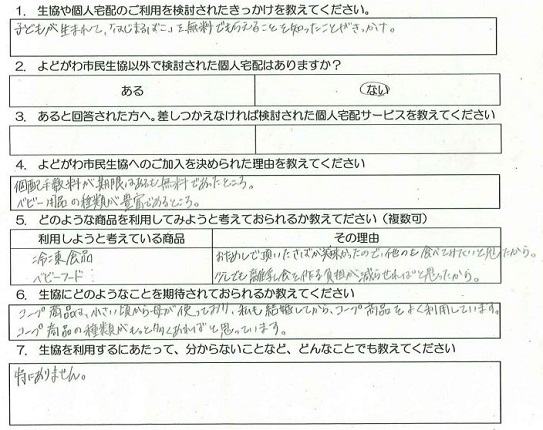 1. 生協や個人宅配のご利用を検討されたきっかけを教えてください。
子どもが生まれて、「はじまるばこ」を無料でもらえることを知ったことがきっかけ。
2. よどがわ市民生協以外で検討された個人宅配はありますか?
ある ない
3. あると回答された方へ。差しつかえなければ検討された個人宅配サービスを教えてください
4. よどがわ市民生協へのご加入を決められた理由を教えてください
個配手数料が期限はあるも無料であったところ。
ベビー用品の種類が豊富であるところ。
5. どのような商品を利用してみようと考えておられるか教えてださい(複数可)
利用しようと考えている商品 その理由
冷凍食品 おためしで頂いたさばが美味かったので、他のも食べてみたいと思たから。
ベビーフード 少しでも離乳食を作る負担が減らせればと思ったから。
6. 生協にどのようなことを期待されておられるか教えてください
コープ商品は、小さい頃から母が使っており、私も結婚してから、コープ商品をよく利用しています。
コープ商品の種類がもっと多くあればと思っています。
7. 生協を利用するにあたって、分からないことなど、どんなことでも教えてください
特にありません。